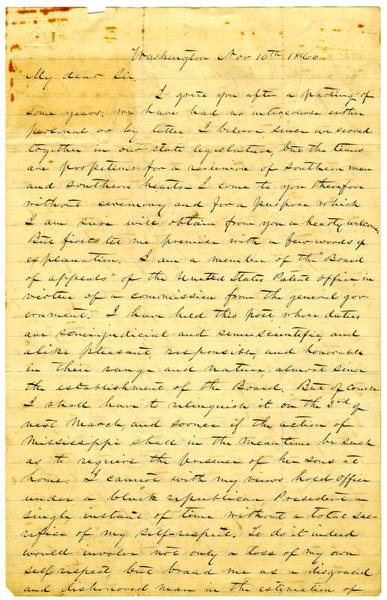 Washington Nov 16th 1860
My dear Sir,
I write you after a parting of
some years; we have had no intercourse either
personal or by letter I believe, since we served
together in our state legislature, but the times
are propitious for a reunion of Southern men
and Southern hearts. I come to you therefore
without ceremony and for a purpose which
I am sure will obtain from you a hearty welcome.
But first let me premise with a few words of
explanation. I am a member of the "Board
of appeals" of the United States Patent Office in
virtue of a commission from the general gov-
ernment. I have held this post whose duties
are semi-judicial and semi scientific, and
alike pleasant, responsible, and honorable
in their range and nature, almost since
the establishment of the Board. But of course
I shall have to relinquish it on the 3rd of
next March, and sooner if the action of
Mississippi shall in the meantime be such
as to require the presence of her sons at
home. I cannot with my views hold office
under a black republican President a
single instant of time without a total sac-
rifice of my self-respect. To do it indeed
would involve not only a loss of my own
self respect but brand me as a disgraced
and dishonored man in the estimation of